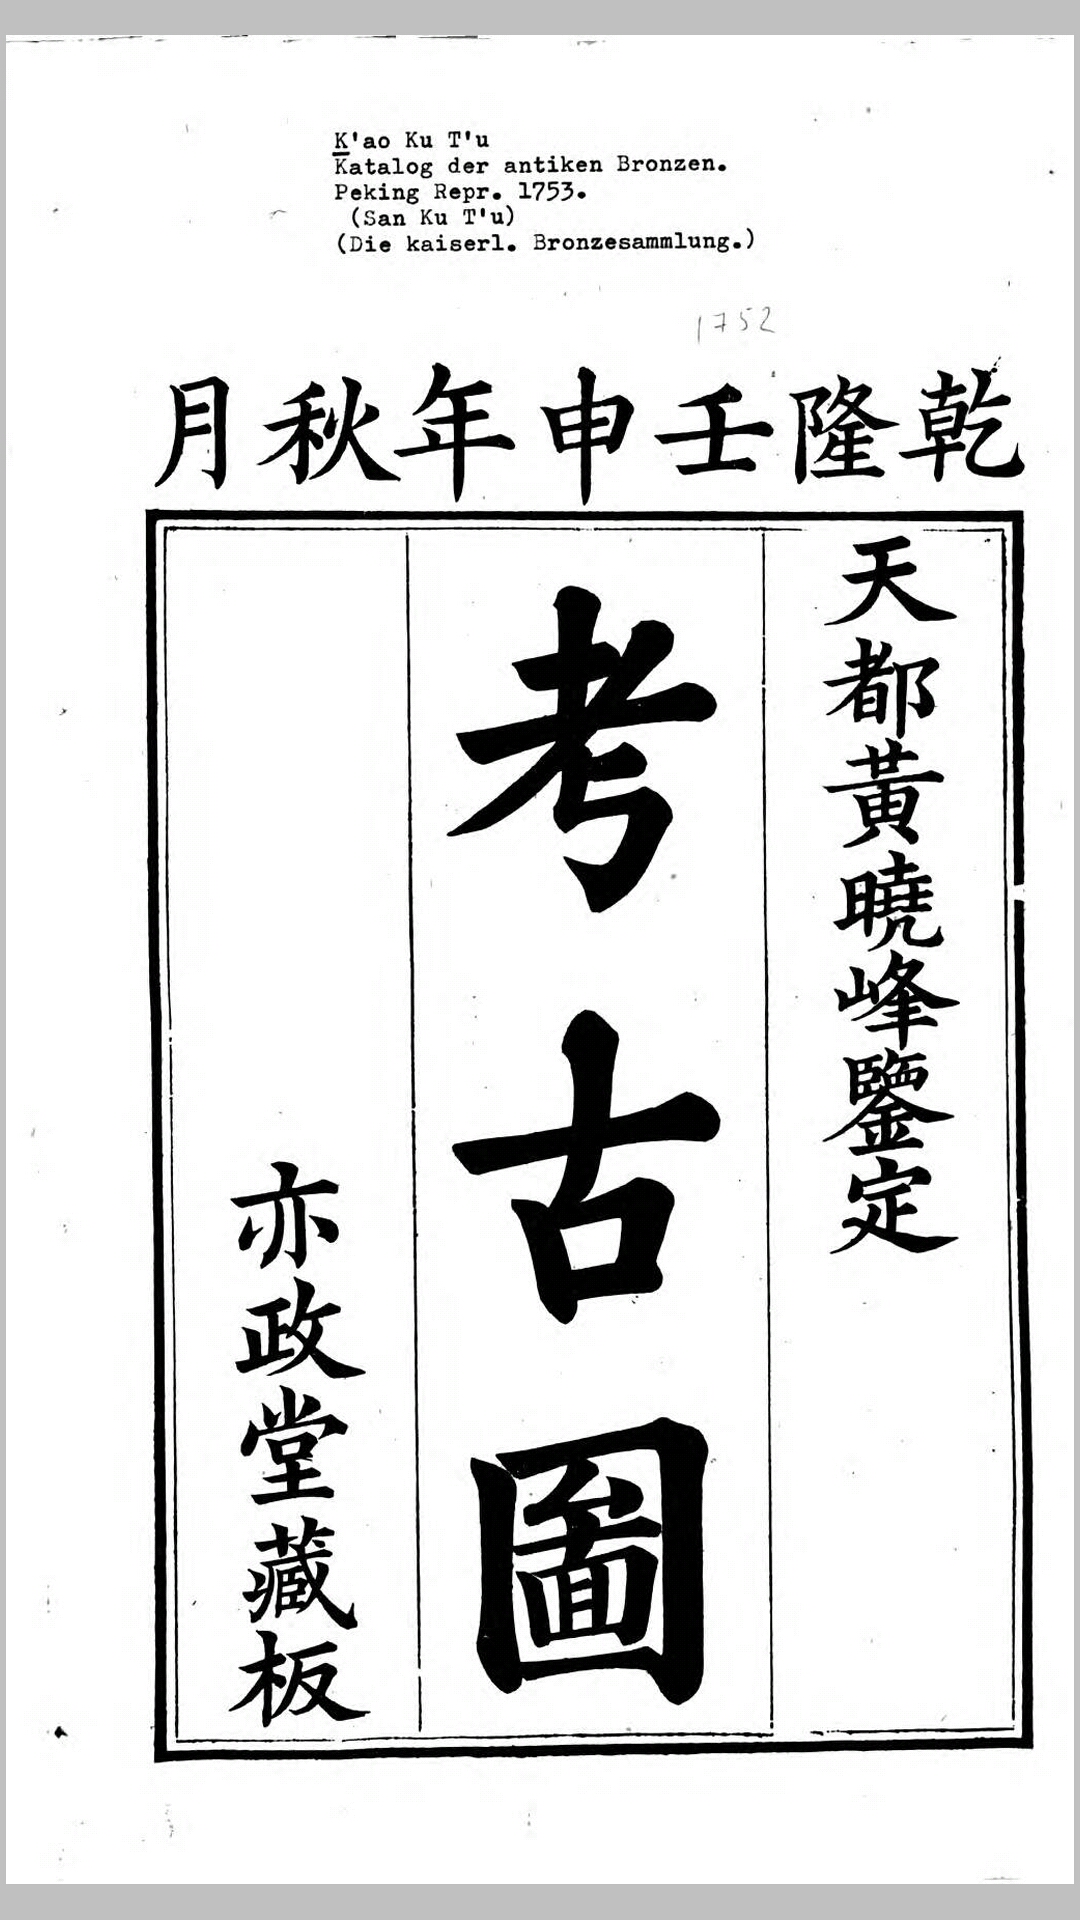 K'ao Ku T'u
Katalog der antiken Bronzen.
Peking Repr. 1753.
(San Ku T'u)
(Die kaiserl. Bronzesammlung.)
1752
乾隆壬申年秋月
天都黃曉峰鑒定
考古圖
亦政堂藏板